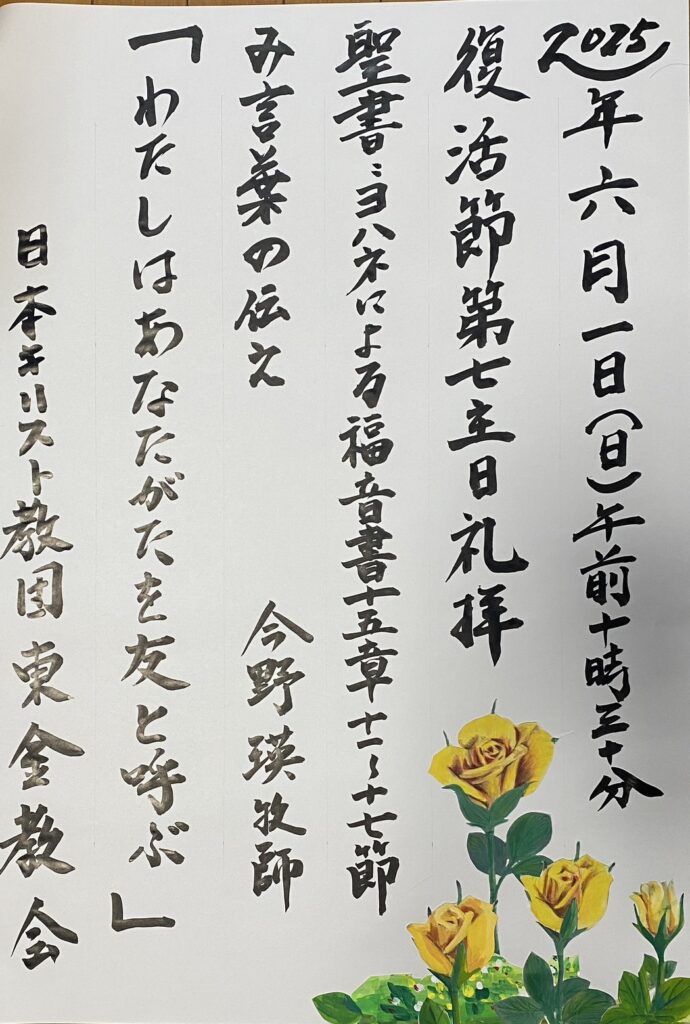 2025年六月一日(日)午前十時三十分
復活節第七主日礼拝
聖書:ヨハネによる福音書十五章十一〜十七節
み言葉の伝え 今野瑛牧師
「わたしはあなたがたを友と呼ぶ」
日本キリスト教団東金教会